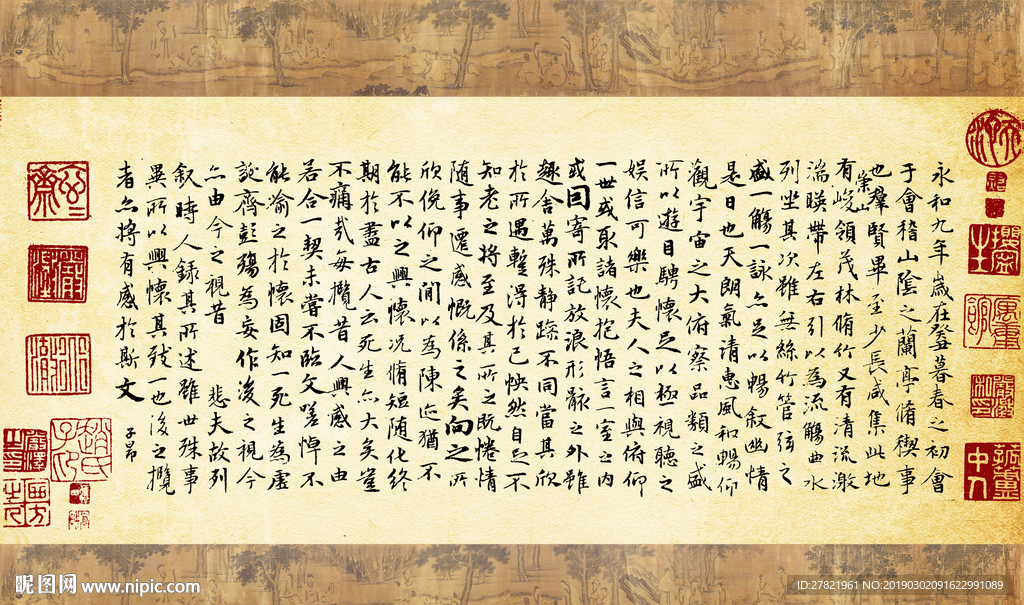 永和九年歲在癸丑暮春之初會
于會稽山陰之蘭亭脩稧事
也羣賢畢至少長咸集此地
有崇山峻領茂林脩竹又有清流激
湍暎帶左右引以為流觴曲水
列坐其次雖無絲竹管弦之
盛一觴一詠亦足以暢叙幽情
是日也天朗氣清惠風和暢仰
觀宇宙之大俯察品類之盛
所以遊目騁懷足以極視聽之
娛信可樂也夫人之相與俯仰
一世或取諸懷抱悟言一室之內
或因寄所託放浪形骸之外雖
趣舍萬殊静躁不同當其欣
於所遇蹔得於己怏然自足不
知老之將至及其所之既惓情
随事遷感慨係之矣向之所
欣俛仰之閒以為陳迹猶不
能不以之興懷況脩短随化終
期於盡古人云死生亦大矣豈
不痛哉每攬昔人興感之由
若合一契未嘗不臨文嗟悼不
能喻之於懷固知一死生為虛
誕齊彭殤為妄作後之視今
亦由今之視昔 悲夫故列
叙時人錄其所述雖世殊事
異所以興懷其致一也後之攬
者亦將有感於斯文
子昂
昵图网 www.nipic.com
ID:27821961 NO:20190302091622991089